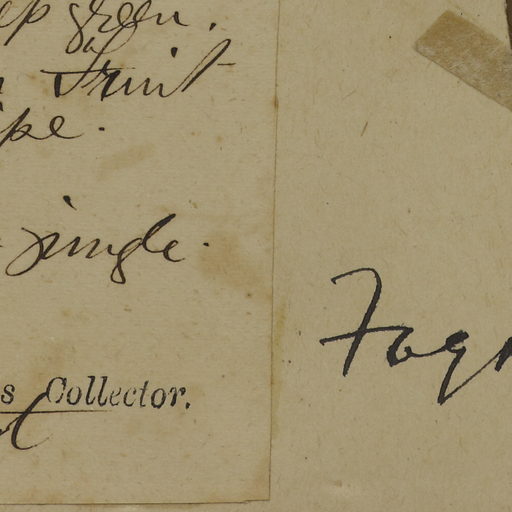 ep green.
Fruit
ipe.
single.
s Collector.
Fag